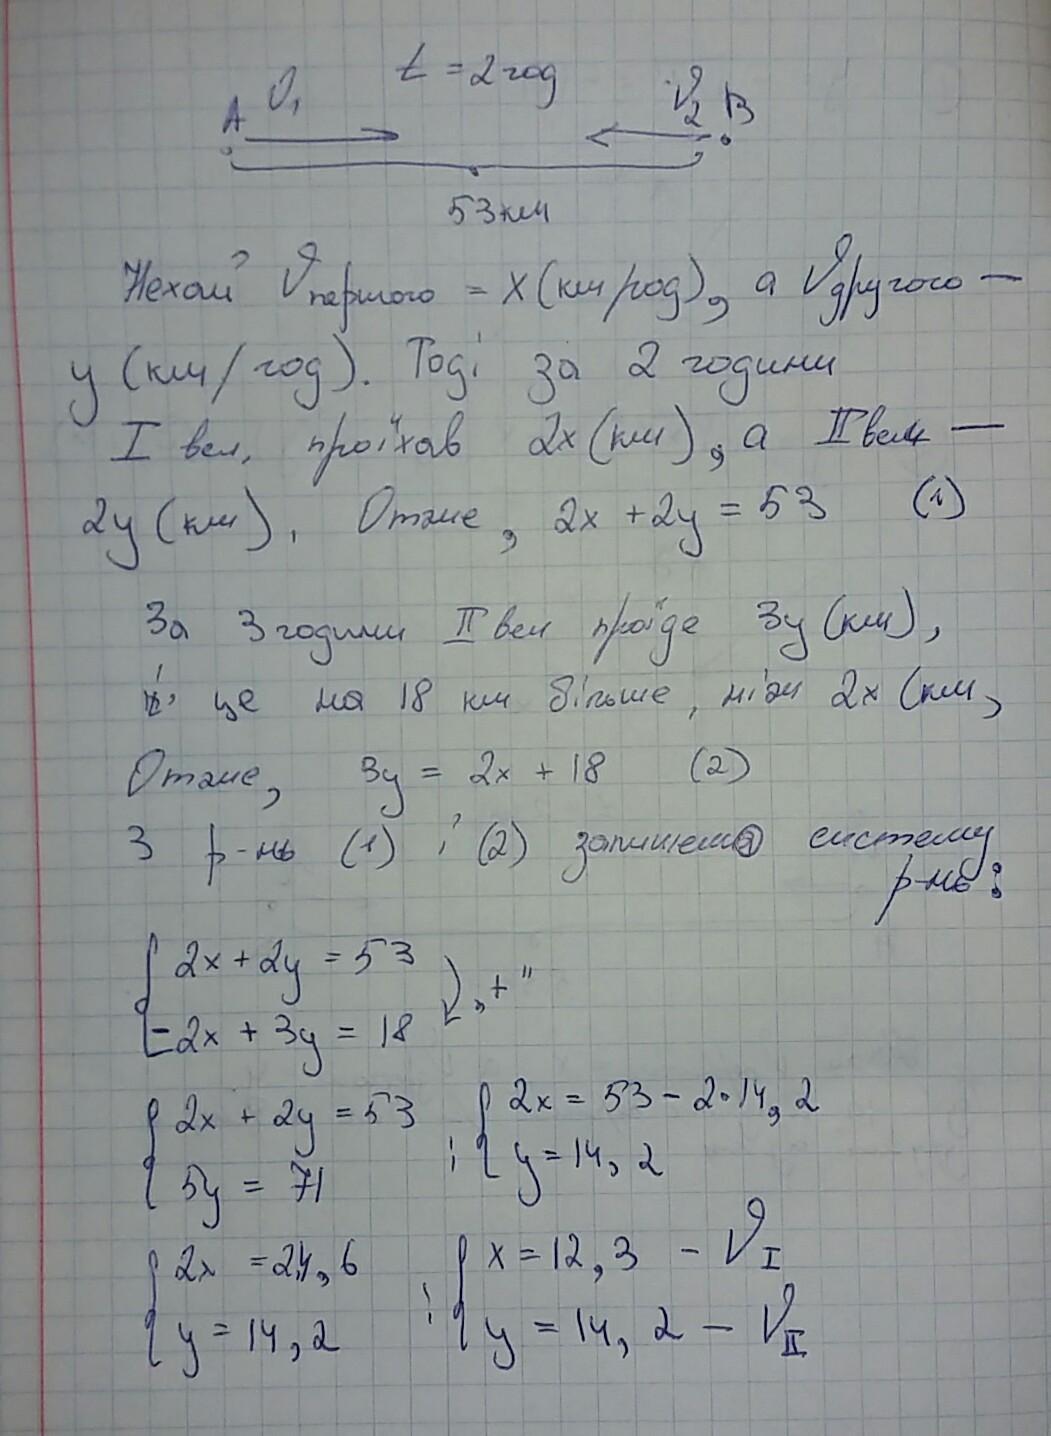 t = 2 год
A V₁ V₂ B
53 км
Нехай Vпершого = x (км/год), а Vдругого —
y (км/год). Тоді за 2 години
I вел. проїхав 2x (км), а II вел —
2y (км). Отже, 2x + 2y = 53 (1)
За 3 години II вел проїде 3y (км),
і це на 18 км більше, ніж 2x (км,
Отже, 3y = 2x + 18 (2)
З р-нь (1) і (2) запишемо систему
р-нь:
2x + 2y = 53
-2x + 3y = 18 „+"
2x + 2y = 53 ; 2x = 53 - 2·14,2
5y = 71 y = 14,2
2x = 24,6 ; x = 12,3 - V I
y = 14,2 y = 14,2 - V II